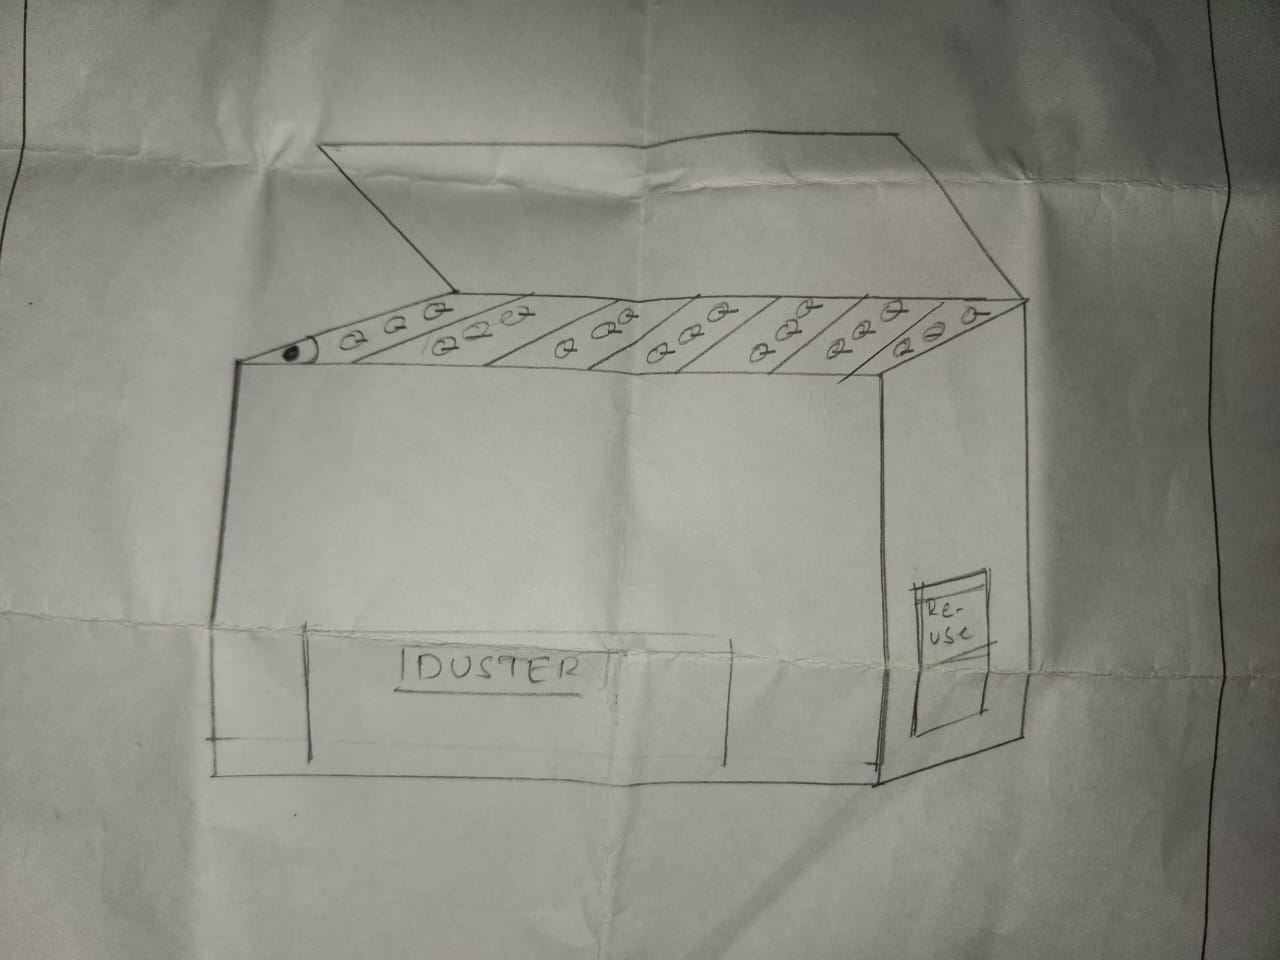 DUSTER
Re-
use